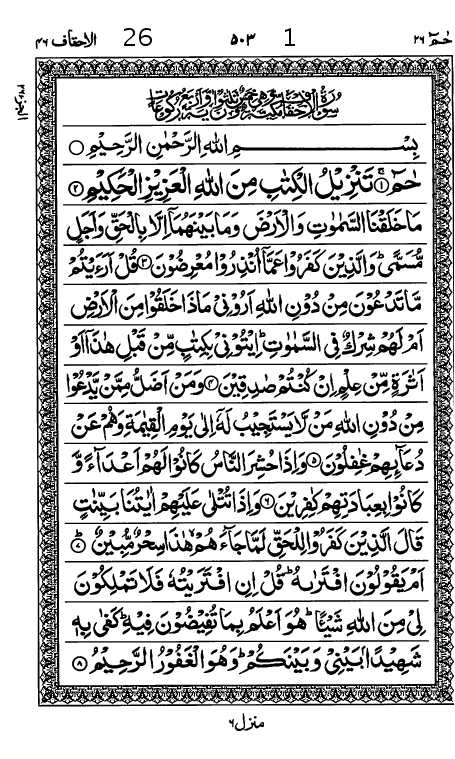 حٰمٓ ٢٦ 1 ٥٠٣ 26 الاحقاف ٤٦
بِسْمِ اللهِ الرَّحْمٰنِ الرَّحِيْمِ
حٰمٓ ① تَنْزِيْلُ الْكِتٰبِ مِنَ اللهِ الْعَزِيْزِ الْحَكِيْمِ ②
مَا خَلَقْنَا السَّمٰوٰتِ وَالْاَرْضَ وَمَا بَيْنَهُمَآ اِلَّا بِالْحَقِّ وَاَجَلٍ
مُّسَمًّى ؕ وَالَّذِيْنَ كَفَرُوْا عَمَّآ اُنْذِرُوْا مُعْرِضُوْنَ ③ قُلْ اَرَءَيْتُمْ
مَّا تَدْعُوْنَ مِنْ دُوْنِ اللهِ اَرُوْنِيْ مَاذَا خَلَقُوْا مِنَ الْاَرْضِ
اَمْ لَهُمْ شِرْكٌ فِي السَّمٰوٰتِ ؕ اِيْتُوْنِيْ بِكِتٰبٍ مِّنْ قَبْلِ هٰذَآ اَوْ
اَثٰرَةٍ مِّنْ عِلْمٍ اِنْ كُنْتُمْ صٰدِقِيْنَ ④ وَمَنْ اَضَلُّ مِمَّنْ يَّدْعُوْا
مِنْ دُوْنِ اللهِ مَنْ لَّا يَسْتَجِيْبُ لَهٗٓ اِلٰى يَوْمِ الْقِيٰمَةِ وَهُمْ عَنْ
دُعَآئِهِمْ غٰفِلُوْنَ ⑤ وَاِذَا حُشِرَ النَّاسُ كَانُوْا لَهُمْ اَعْدَآءً وَّ
كَانُوْا بِعِبَادَتِهِمْ كٰفِرِيْنَ ⑥ وَاِذَا تُتْلٰى عَلَيْهِمْ اٰيٰتُنَا بَيِّنٰتٍ
قَالَ الَّذِيْنَ كَفَرُوْا لِلْحَقِّ لَمَّا جَآءَهُمْ ۙ هٰذَا سِحْرٌ مُّبِيْنٌ ؕ ⑦
اَمْ يَقُوْلُوْنَ افْتَرٰىهُ ؕ قُلْ اِنِ افْتَرَيْتُهٗ فَلَا تَمْلِكُوْنَ
لِيْ مِنَ اللهِ شَيْـًٔا ؕ هُوَ اَعْلَمُ بِمَا تُفِيْضُوْنَ فِيْهِ ؕ كَفٰى بِهٖ
شَهِيْدًۢا بَيْنِيْ وَبَيْنَكُمْ ؕ وَهُوَ الْغَفُوْرُ الرَّحِيْمُ ⑧
منزل ٦